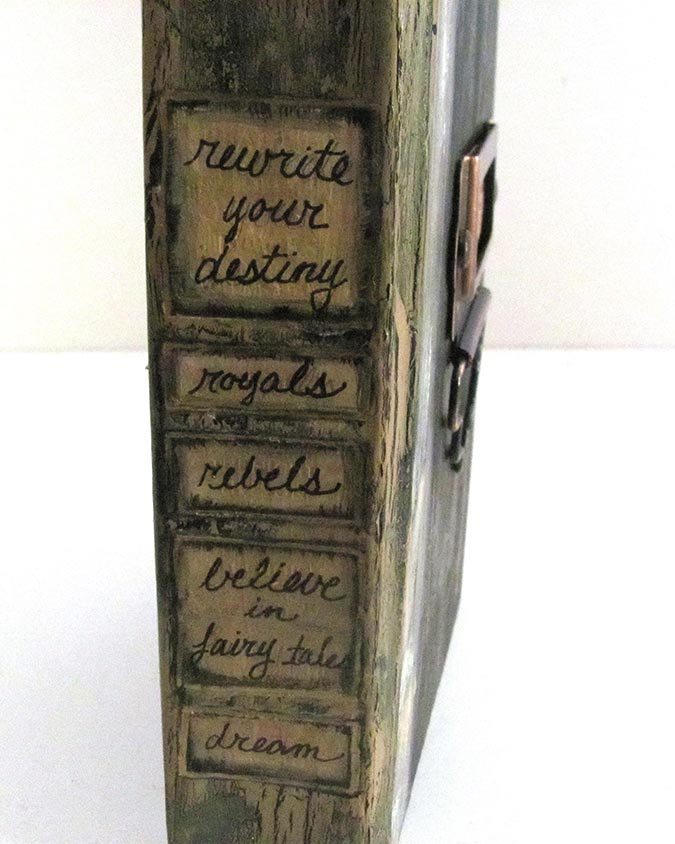 rewrite
your
destiny
royals
rebels
believe
in
fairy tales
dream